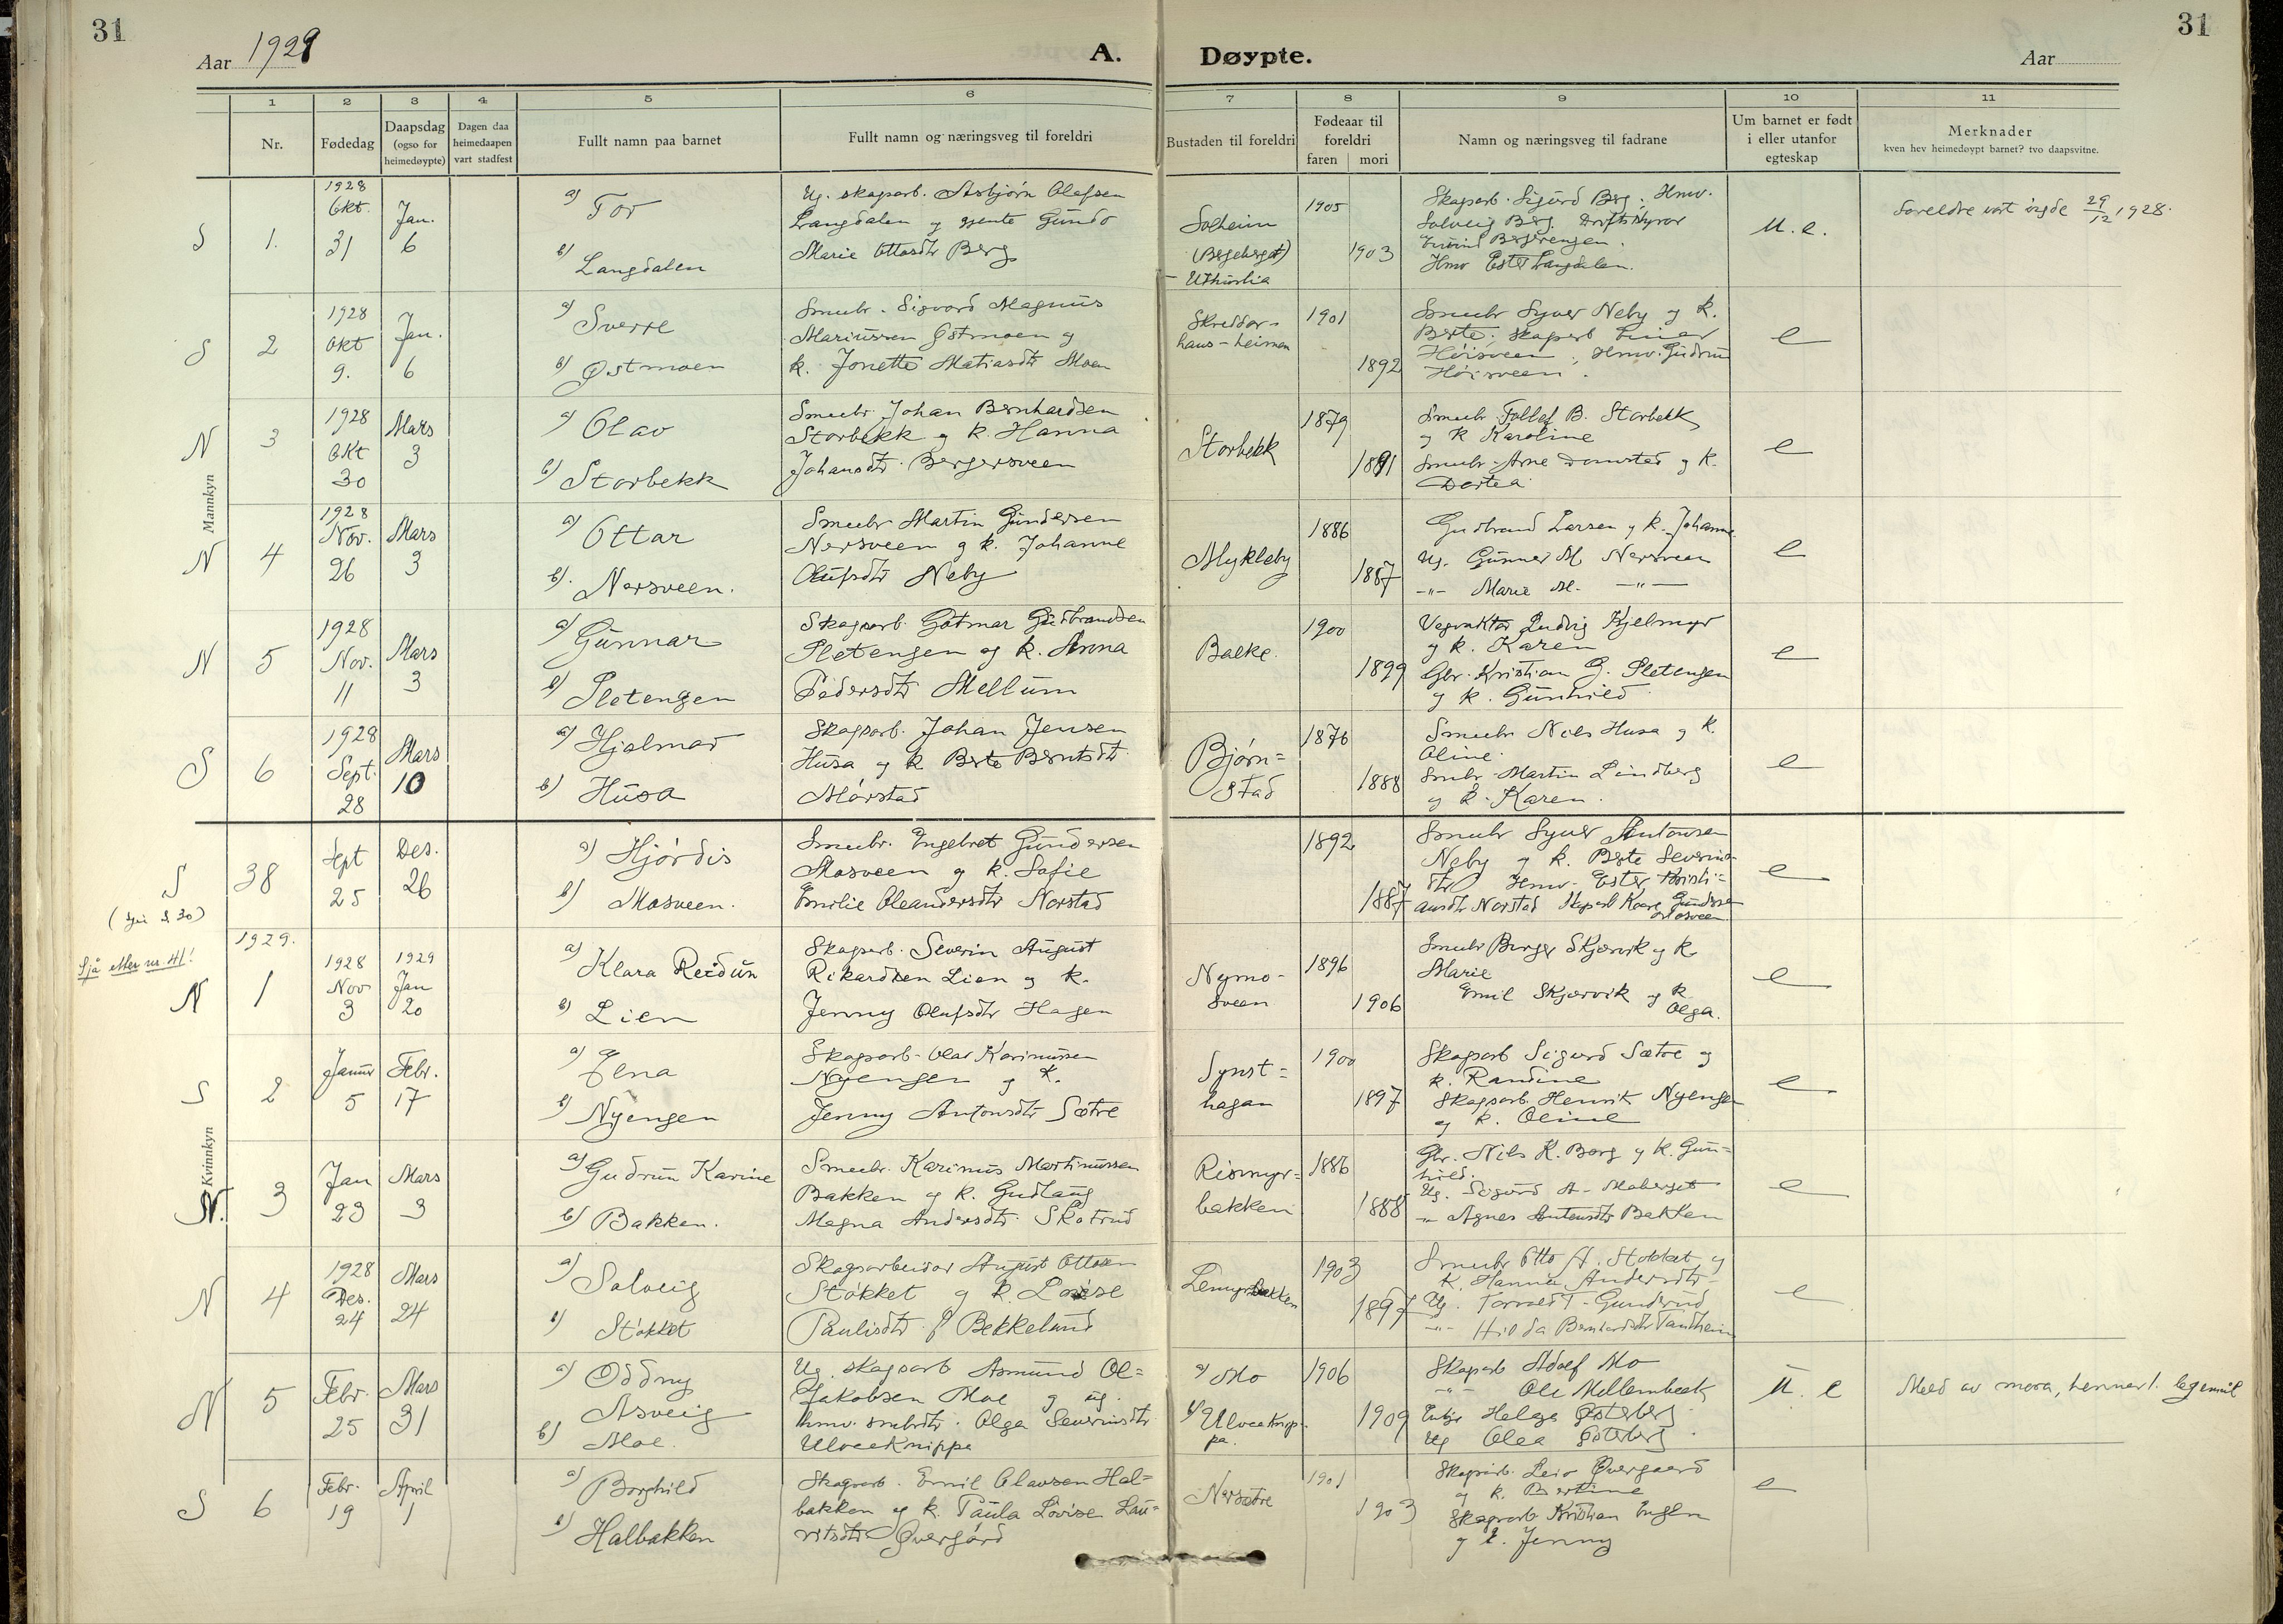 31
Aar 1929
A.
Døypte.
Aar
31
1
2
3
4
5
6
7
8
9
10
11
Nr.
Fødedag
Daapsdag
(ogso for
heimedøypte)
Dagen daa
heimedaapen
vart stadfest
Fullt namn paa barnet
Fullt namn og næringsveg til foreldri
Bustaden til foreldri
Fødeaar til
foreldri
faren mori
Namn og næringsveg til fadrane
Um barnet er født
i eller utanfor
egteskap
Merknader
kven hev heimedøypt barnet? tvo daapsvitne.
Mannkyn
S 1.
1928
Okt.
31
Jan.
6
a) Tor
b) Langdalen
Ug. skogsarb. Asbjørn Olafsen
Langdalen og gjente Gunda
Marie Ottosdtr Berg
Solheim
(Bergeberget)
1905
1903
Skogsarb. Sigurd Berg, Hmv.
Solveig Berg. Driftstyrar
Hmv Ester Langdalen.
U. e.
Foreldre vart vigde 29/12 1928.
S 2
1928
Okt
9.
Jan.
6
a) Sverre
b) Østmoen
Smubr. Sigvard Magnus
Mariussen Østmoen og
k. Jonette Matiasdtr Moen
Skreddar-
haus-heimen
1901
1892
Smubr Syver Neby og k.
Berte; skogsarb Einar
Høisveen; Hmv. Gudrun
Høisveen.
e
N 3
1928
Okt
30
Mars
3
a) Olav
b) Storbekk
Smubr. Johan Bernhardsen
Storbekk og k. Hanna
Johansdtr. Bergersveen
Storbekk
1879
1891
Smubr. Tollef B. Storbekk
og k Karoline
Smubr. Arne Domstad og k.
Dortea
e
N 4
1928
Nov.
26
Mars
3
a) Ottar
b). Nersveen.
Smubr Martin Gundersen
Nersveen og k. Johanne
Olufsdtr Neby
Mykleby
1886
1887
Gudbrand Larsen og k. Johanne
Ug. Gunnar M. Nersveen
-"- Marie M. -"-
e
N 5
1928
Nov.
11
Mars
3
a) Gunnar
b) Sletengen
Skogsarb. Gotmar Gudbrandsen
Sletengen og k. Anna
Pedersdtr Mellum
Bakke.
1900
1899
Vegvaktar Ludvig Kjelmyr
og k. Karen
Gbr. Kristian G. Sletengen
og k. Gunhild
e
S 6
1928
Sept.
28
Mars
10
a) Hjalmar
b) Husa
Skogsarb. Johan Jensen
Husa og k Berte Berntsdtr.
Mørstad
Bjørn=
stad
1876
1888
Smubr Nils Husa og k.
Oline.
Smbr. Martin Lindberg
og k. Karen.
e
S 38
Sept
25
Des.
26
a) Hjørdis
b) Mosveen.
Smubr. Engebret Gundersen
Mosveen og k. Sofie
Emilie Oleandersdtr Norstad
1892
1887
Smubr Syver Antonsen
Neby og k. Berte Severins-
dtr Hmv. Ester Kristi=
ansdtr Norstad Skogsarb Kaare Gundersen
Mosveen
e
1929.
Sjå etter nr. 41!
N 1
1928
Nov
3
1929
Jan
20
a) Klara Reidun
b) Lien
Skogsarb. Severin August
Rikardsen Lien og k.
Jenny Olufsdtr Hagen
Nymo-
sveen
1896
1906
Smubr Birger Skjærvik og k
Marie
Emil Skjærvik og k
Olga.
e
Kvinnkyn
S 2
Januar
5
Febr.
17
a) Elna
b) Nyengen
Skogsarb. Olav Karinussen
Nyengen og k.
Jenny Antonsdtr Sætre
Synst=
hagan
1900
1897
Skogsarb Sigurd Sætre og
k. Randine
Skogsarb. Henrik Nyengen
og k. Oline
e
N. 3
Jan
23
Mars
3
a) Gudrun Karine
b) Bakken.
Smubr. Karinus Martinussen
Bakken og k. Gudlaug
Magna Andersdtr. Skotrud
Rismyr=
bakken
1886
1888
Gbr. Nils K. Berg og k. Gun=
hild.
Ug. Sigurd A. Moberget
-"- Agnes Antonsdtr Bakken
e
N 4
1928
Des.
24
Mars
24
a) Solveig
b) Støkket
Skogsarbeidar August Ottosen
Støkket og k. Lovise
Paulisdtr Bekkelund
Lemyrbakken
1903
1897
Smubr Otto A. Støkket og
k. Hanna Andersdtr
Ug. Torvald T. Gunderud
-"- Hilda Bernhardsdtr Tandheim
e
N 5
Febr.
25
Mars
31
a) Oddny
Asveig
b) Moe.
Ug. skogsarb Asmund Ol=
Jakobsen Moe og ug.
hmv. smbrdtr. Olga Severinsdtr
Ulveknippa
a) Mo
b) Ulveknip-
pa.
1906
1909
Skogsarb Adolf Mo
-"- Ole Mellembeck
Enkje Helga Østerberg
Ug Olea Østerberg.
U. e
Meld av mora,
S 6
Febr.
19
April
1
a) Borghild
b) Halbakken
Skogsarb. Emil Olavsen Hal=
bakken og k. Paula Lovise Lau=
ritsdtr Øvergård
Nersætre
1901
1903
Skogsarb. Leiv Øvergaard
og k. Bertine
Skogsarb Kristian Engen
og k. Jenny
e